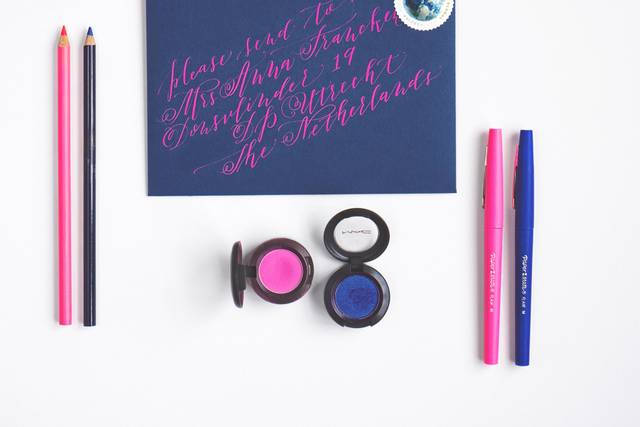 please send to
Mrs Anna Francken
Donsvlinder 19
The Netherlands
Utrecht
MAC
PaperMate Flair M
PaperMate Flair M